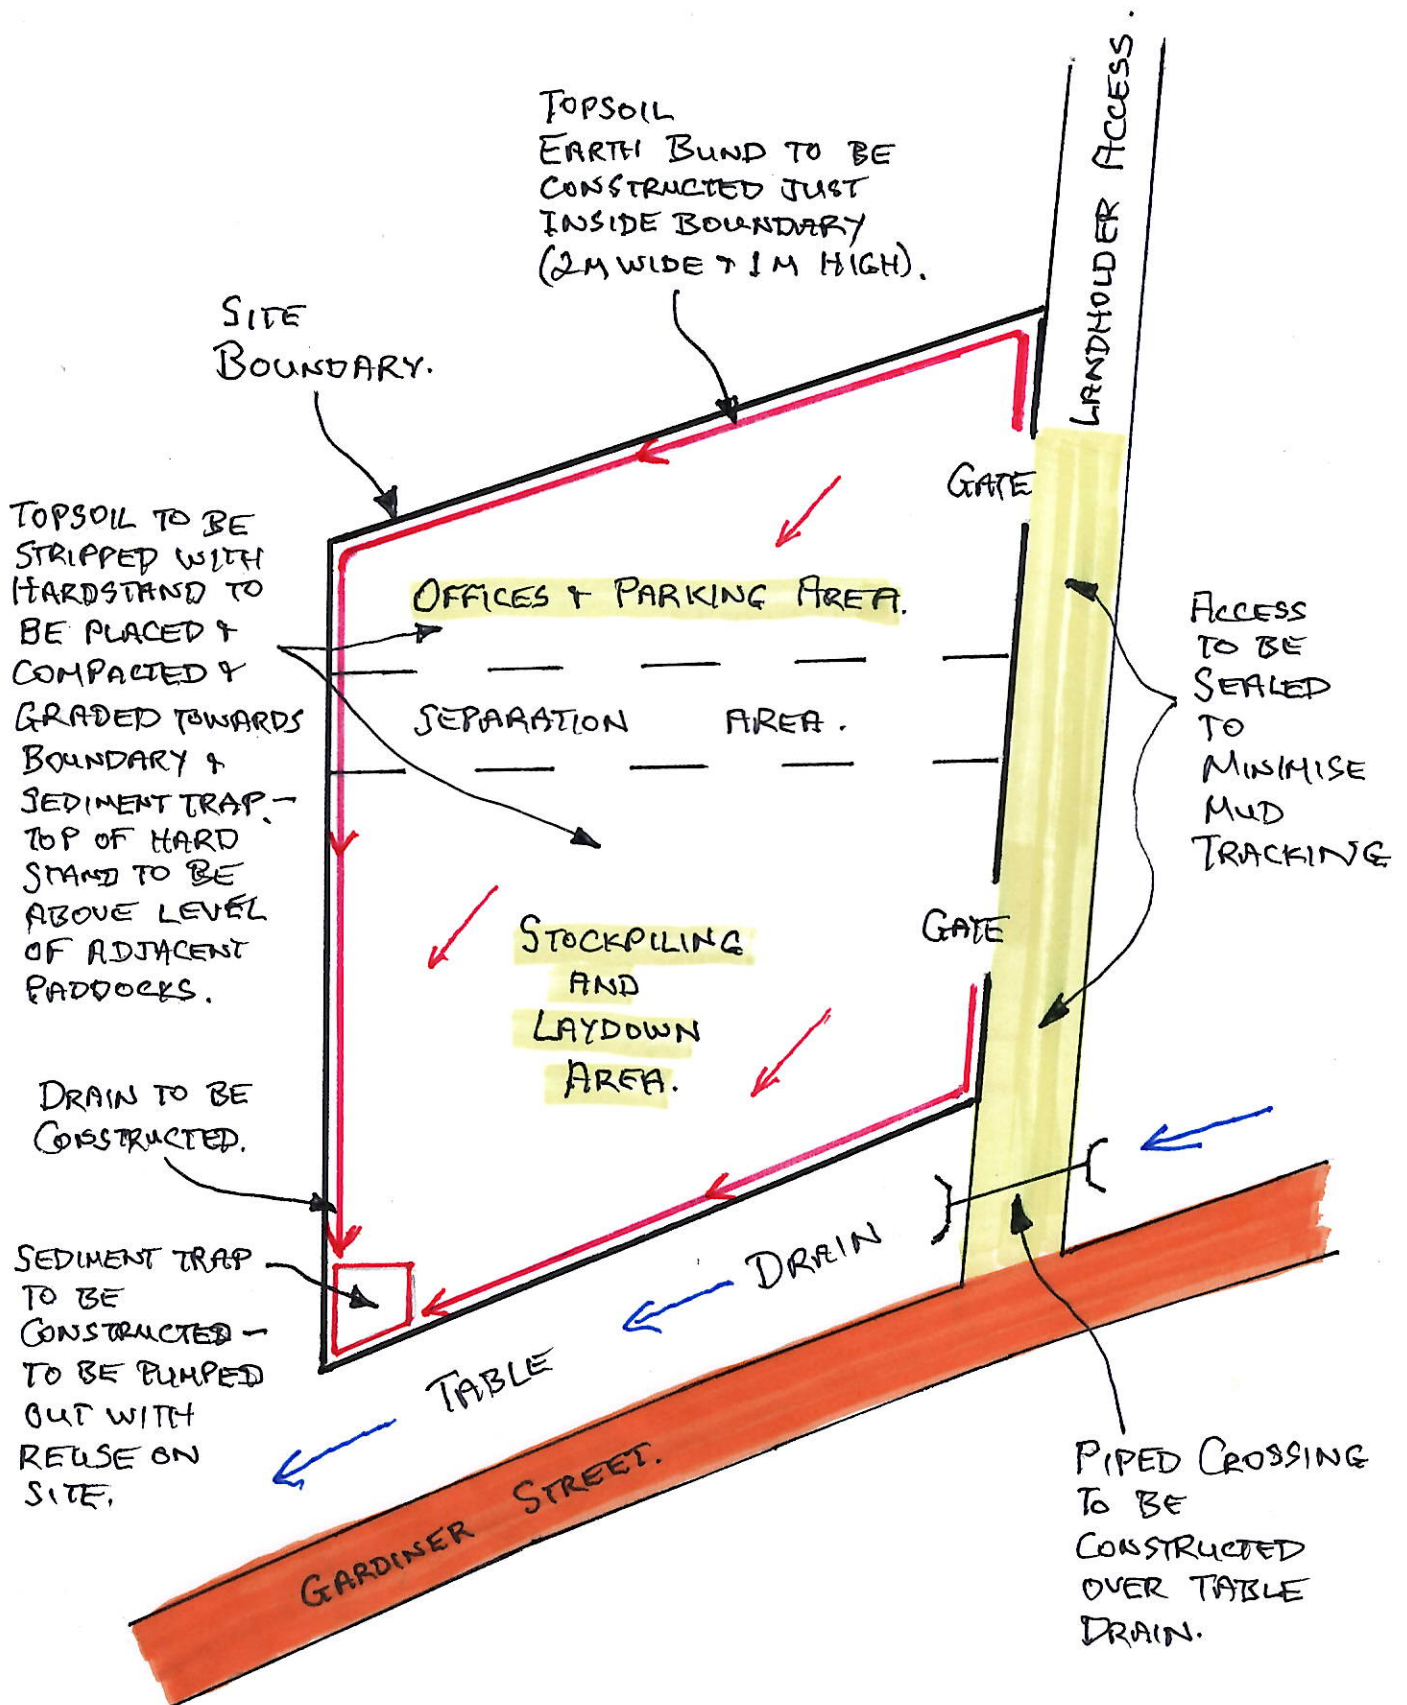 TOPSOIL
EARTH BUND TO BE
CONSTRUCTED JUST
INSIDE BOUNDARY
(2M WIDE & 1M HIGH).
LANDHOLDER ACCESS.
SITE
BOUNDARY.
GATE
TOPSOIL TO BE
STRIPPED WITH
HARDSTAND TO
BE PLACED &
COMPACTED &
GRADED TOWARDS
BOUNDARY &
SEDIMENT TRAP.-
TOP OF HARD
STAND TO BE
ABOVE LEVEL
OF ADJACENT
PADDOCKS.
OFFICES & PARKING AREA.
SEPARATION AREA.
ACCESS
TO BE
SEALED
TO
MINIMISE
MUD
TRACKING
GATE
STOCKPILING
AND
LAYDOWN
AREA.
DRAIN TO BE
CONSTRUCTED.
SEDIMENT TRAP
TO BE
CONSTRUCTED-
TO BE PUMPED
OUT WITH
REUSE ON
SITE.
TABLE DRAIN
GARDINER STREET.
PIPED CROSSING
TO BE
CONSTRUCTED
OVER TABLE
DRAIN.